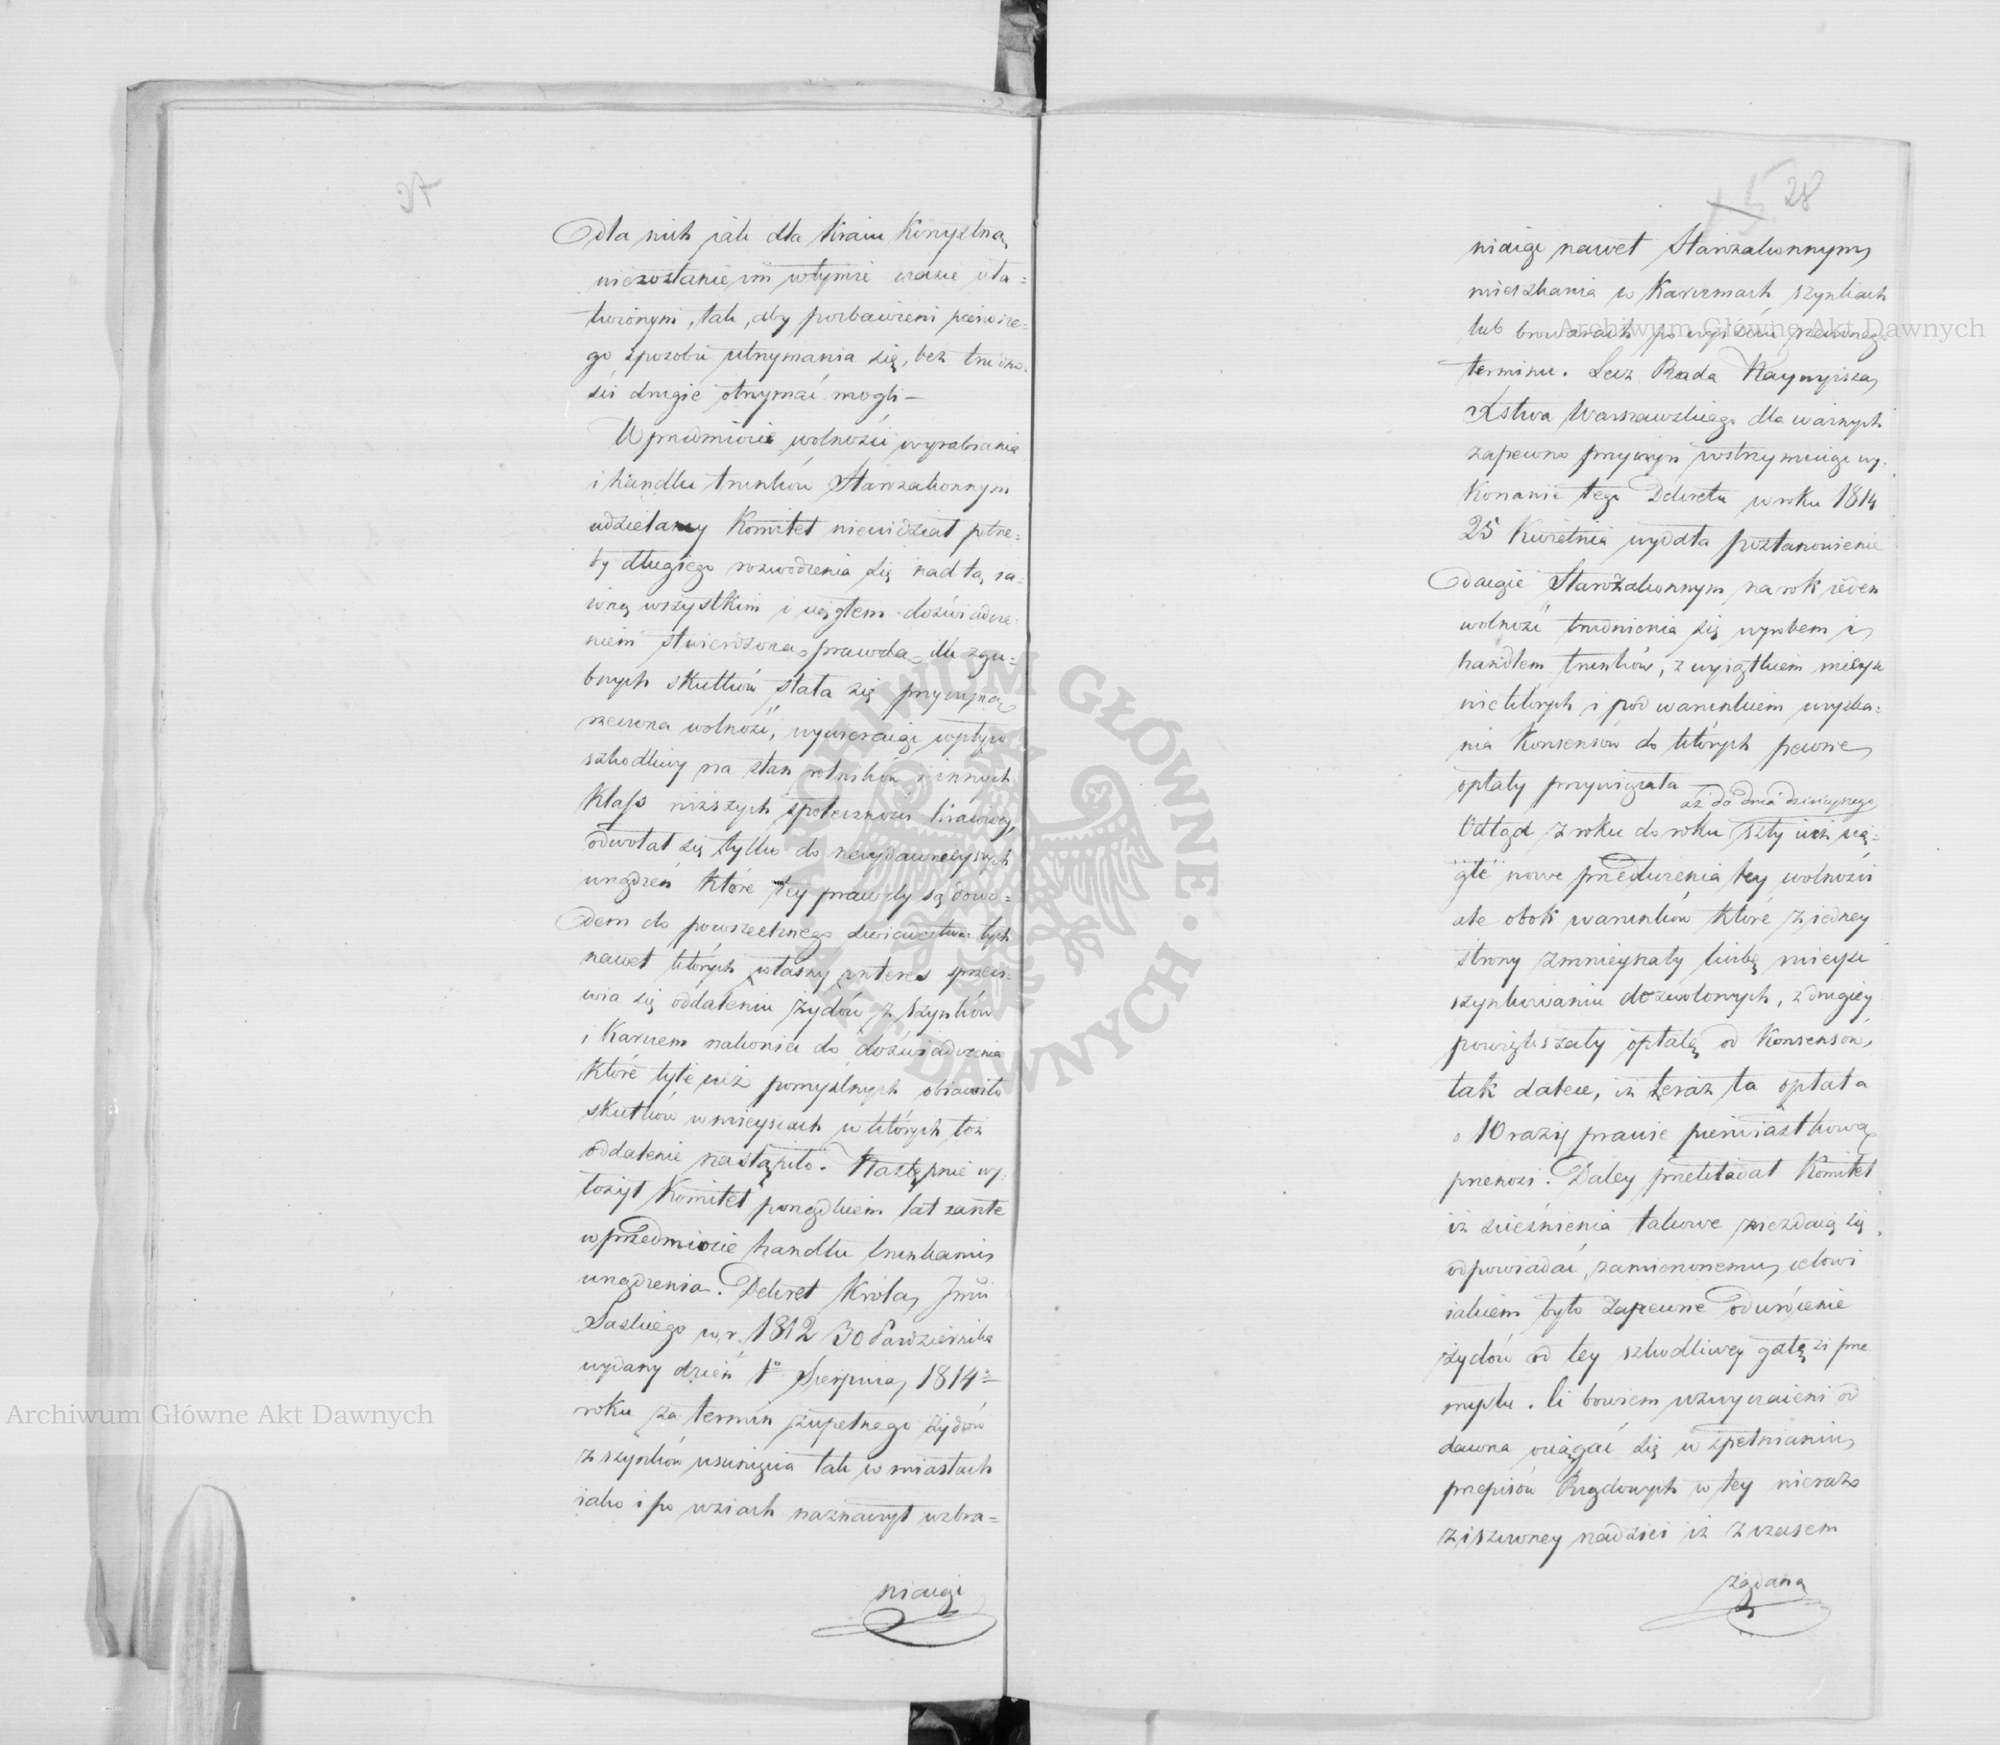 27
dla nich jak dla Kraiu Korzystna,
niezostanie im wtymże czasie uła=
twionym, tak, aby pozbawieni pierwsze=
go sposobu utrzymania się, bez trudno=
ści drugie otrzymać mogli –
W przedmiocie wolności wyrabiania
i handlu trunków Starozakonnym
udzielaney Komitet niewidział potrze=
by długiego rozwodzenia się nad tą, ia=
wną wszystkim i ciągłem doświadcze=
niem stwierdzoną prawdą, ilu zgu=
bnych skutków stała się przyczyną
rzeczona wolność, wywieraiąc wpływ
szkodliwy na stan rolników i innych
Klass niższych społeczności Kraiowey,
odwołał się tylko do naydawnieyszych
urządzeń które tey prawdy są dowo=
dem do powszechnego świadectwa tych
nawet których własny interes sprzeci=
wia się oddaleniu żydów z szynków
i Karczem nakoniec do doświadczenia
które tyle już pomyślnych obiawiło
skutków w mieyscach w których toż
oddalenie nastąpiło. Następnie wy=
łożył Komitet porządkiem lat zaszłe
w przedmiocie handlu trunkami
urządzenia. Dekret Króla Jmci
Saskiego w r. 1812 30 Października
wydany dzień 1° Sierpnia 1814=
roku za termin zupełnego żydów
z szynków usunięcia tak w miastach
iako i po wsiach naznaczył wzbra=
niaiąc
28
niaiąc nawet Starozakonnym
mieszkania w Karczmach szynkach
lub browarach po wyiściu rzeczonego
terminu. Lecz Rada Naywyższa
Xstwa Warszawskiego dla ważnych
zapewne przyczyn wstrzymuiąc wy=
Konanie tego Dekretu w roku 1814
25 Kwietnia wydała postanowienie
daiące Starozakonnym na rok ieden
wolność trudnienia się wyrobem i
handlem trunków, z wyiątkiem mieysc
niektórych i pod warunkiem uzyska=
nia Konsensów do których pewne
opłaty przywiązała
aż do dnia dzisieyszego
Odtąd z roku do roku szły iuż cią=
głe nowe przedłużenia tey wolności
ale obok warunków które z iedney
strony zmnieyszały liczbę mieysc
szynkowaniu dozwolonych, z drugiey
powiększały opłatę od Konsensów,
tak dalece, iż teraz ta opłata
o 10 razy prawie pierwiastkową
przenosi. Daley przekładał Komitet
iż ścieśnienia takowe niezdaią się
odpowiadać zamierzonemu celowi
iakiem było zapewne odwrócenie
żydów od tey szkodliwey gałęzi prze
mysłu. Ci bowiem wzwyczaieni od
dawna ociągać się w spełnianiu
przepisów Rządowych w tey nieraz
ziszczoney nadziei iż z czasem
żądana
Archiwum Główne Akt Dawnych
Archiwum Główne Akt Dawnych
ARCHIWUM GŁÓWNE · AKT DAWNYCH ·
1